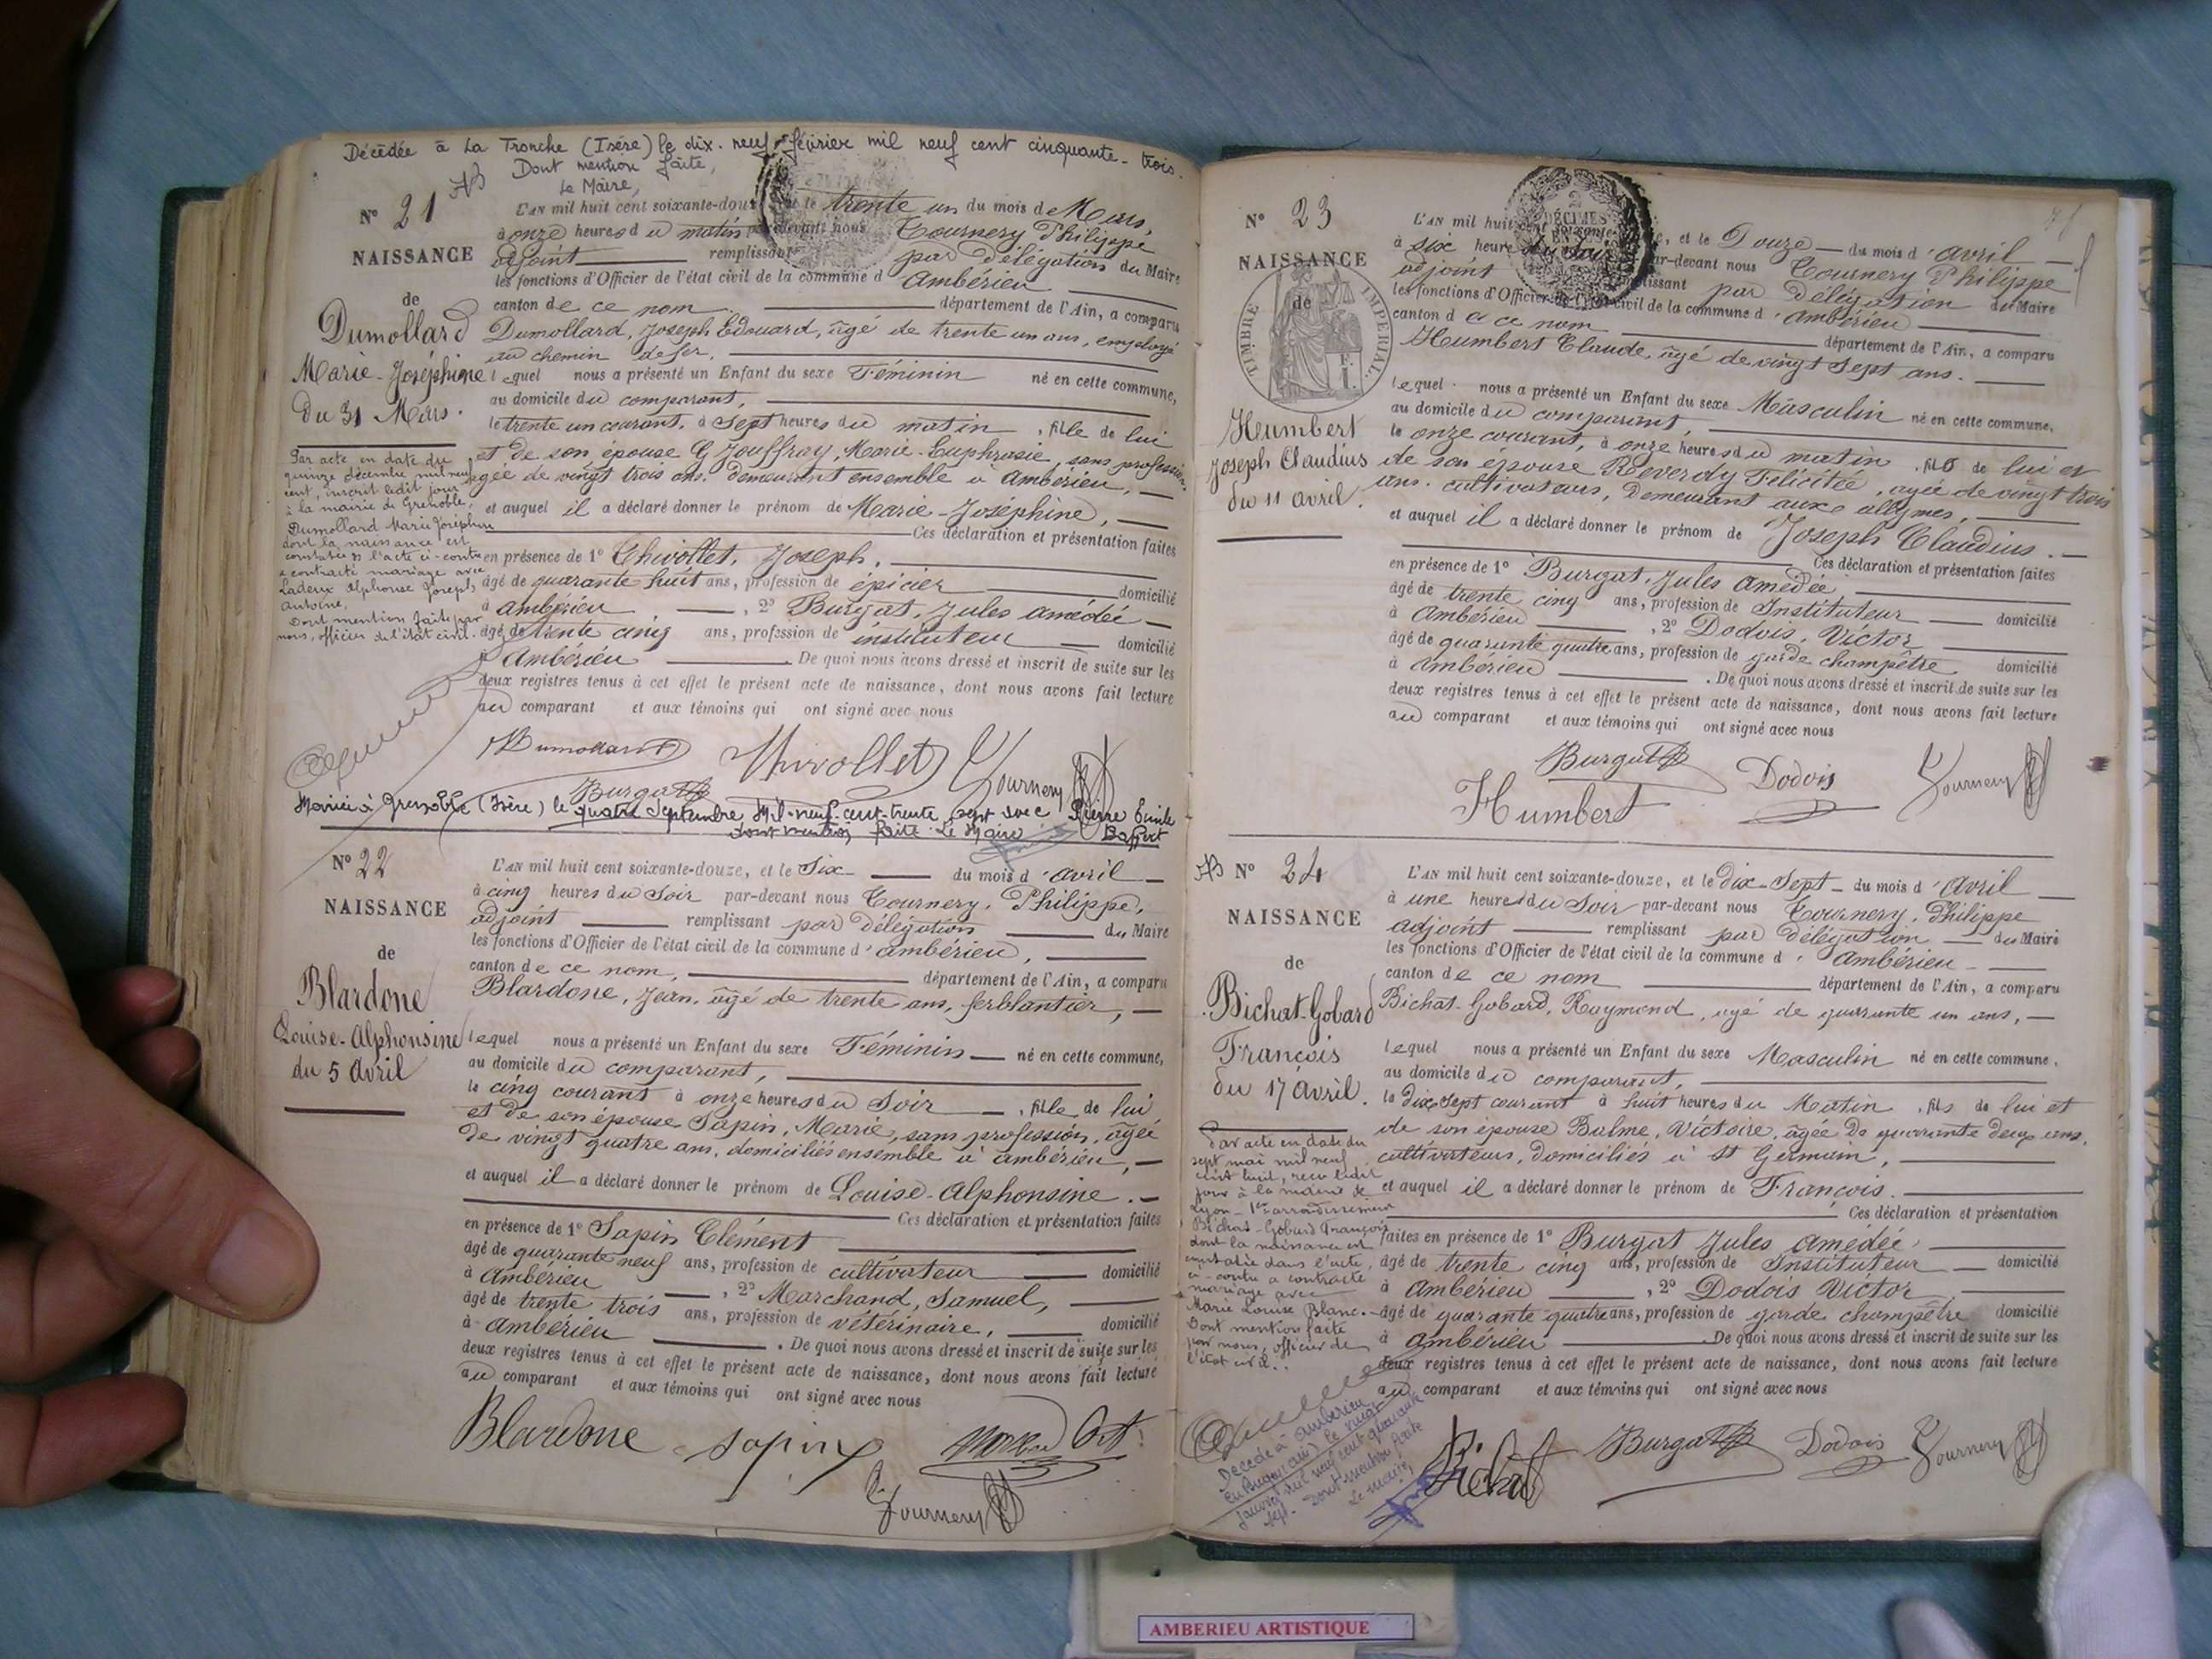 Décédée à La Tronche (Isère) le dix-neuf février mil neuf cent cinquante-trois.
Dont mention faite,
Le Maire,
N° 21
NAISSANCE
de
Dumollard
Marie-Joséphine
du 31 Mars.
Par acte en date du
quinze décembre mil neuf
cent, inscrit ledit jour
à la mairie de Grenoble,
Dumollard Marie Joséphine
dont la naissance est
constatée en l'acte ci-contre
a contracté mariage avec
Ladeux Alphonse Joseph
Antoine,
Dont mention faite par
nous, officier de l'état civil.
L'AN mil huit cent soixante-douze, et le trente un du mois de Mars,
à onze heures du matin par-devant nous Tournery Philippe
adjoint remplissant par délégation du Maire
les fonctions d'Officier de l'état civil de la commune d'Ambérieu
canton de ce nom, département de l'Ain, a comparu
Dumollard, Joseph Edouard, âgé de trente un ans, employé
au chemin de fer,
lequel nous a présenté un Enfant du sexe Féminin né en cette commune,
au domicile du comparant,
le trente un courant, à Sept heures du matin, fille de lui
et de son épouse Jouffray, Marie-Euphrasie, sans profession,
âgée de vingt trois ans, demeurant ensemble à Ambérieu,
et auquel il a déclaré donner le prénom de Marie-Joséphine,
Ces déclaration et présentation faites
en présence de 1° Chivollet, Joseph,
âgé de quarante huit ans, profession de épicier domicilié
à ambérieu, 2° Burgat, Jules amédée
âgé de trente cinq ans, profession de instituteur domicilié
à Ambérieu. De quoi nous avons dressé et inscrit de suite sur les
deux registres tenus à cet effet le présent acte de naissance, dont nous avons fait lecture
au comparant et aux témoins qui ont signé avec nous
Dumollard Chivollet Tournery
Burgat
Mariée à Grenoble (Isère) le quatre Septembre Mil-neuf-cent-trente sept avec Pierre Emile
Dont mention faite. Le Maire
N° 22
NAISSANCE
de
Blardone
Louise-Alphonsine
du 5 Avril
L'AN mil huit cent soixante-douze, et le Six du mois d'avril
à cinq heures du Soir par-devant nous Tournery, Philippe,
adjoint remplissant par délégation du Maire
les fonctions d'Officier de l'état civil de la commune d'ambérieu,
canton de ce nom, département de l'Ain, a comparu
Blardone, Jean, âgé de trente ans, ferblantier,
lequel nous a présenté un Enfant du sexe Féminin né en cette commune,
au domicile du comparant,
le cinq courant à onze heures du Soir, fille de lui
et de son épouse Sapin, Marie, sans profession, âgée
de vingt quatre ans, domiciliés ensemble à ambérieu,
et auquel il a déclaré donner le prénom de Louise-Alphonsine.
Ces déclaration et présentation faites
en présence de 1° Sapin Clément
âgé de quarante neuf ans, profession de cultivateur domicilié
à Ambérieu, 2° Marchand, Samuel,
âgé de trente trois ans, profession de vétérinaire, domicilié
à ambérieu. De quoi nous avons dressé et inscrit de suite sur les
deux registres tenus à cet effet le présent acte de naissance, dont nous avons fait lecture
au comparant et aux témoins qui ont signé avec nous
Blardone Sapin
Tournery
N° 23
NAISSANCE
de
TIMBRE IMPERIAL
Humbert
Joseph Claudius
du 11 avril.
2 DÉCIMES
L'AN mil huit cent soixante-, et le Douze du mois d'avril
à six heure du soir par-devant nous Tournery Philippe
adjoint remplissant par délégation du Maire
les fonctions d'Officier de l'état civil de la commune d'ambérieu
canton d e ce nom département de l'Ain, a comparu
Humbert Claude, âgé de vingt sept ans.
lequel nous a présenté un Enfant du sexe Masculin né en cette commune,
au domicile du comparant,
le onze courant, à onze heures du matin, fils de lui et
de son épouse Réverdy Félicitée, âgée de vingt trois
ans. cultivateurs, demeurant aux allymes,
et auquel il a déclaré donner le prénom de Joseph Claudius.
Ces déclaration et présentation faites
en présence de 1° Burgat, Jules amédée
âgé de trente cinq ans, profession de Instituteur domicilié
à Ambérieu, 2° Dodois, Victor
âgé de quarante quatre ans, profession de garde champêtre domicilié
à ambérieu. De quoi nous avons dressé et inscrit de suite sur les
deux registres tenus à cet effet le présent acte de naissance, dont nous avons fait lecture
au comparant et aux témoins qui ont signé avec nous
Burgat Dodois Tournery
Humbert
N° 24
NAISSANCE
de
Bichat-Gobard
François
du 17 avril.
Par acte en date du
sept mai mil neuf
cent huit, reçu ledit
jour à la mairie de
Lyon - 1er arrondissement
Bichat-Gobard François
dont la naissance est
constatée dans l'acte
ci-contre a contracté
mariage avec
Marie Louise Blanc.
Dont mention faite
par nous, officier de
l'état civil.
Décédé à Ambérieu
en Bugey (Ain) le vingt
janvier mil neuf cent quarante
sept. Dont mention faite
Le maire,
L'AN mil huit cent soixante-douze, et le dix-Sept du mois d'Avril
à une heure du Soir par-devant nous Tournery, Philippe
adjoint remplissant par délégation du Maire
les fonctions d'Officier de l'état civil de la commune d'Ambérieu
canton de ce nom département de l'Ain, a comparu
Bichat-Gobard, Raymond, âgé de quarante un ans,
lequel nous a présenté un Enfant du sexe Masculin né en cette commune,
au domicile du comparant,
le dix sept courant à huit heures du Matin, fils de lui et
de son épouse Balme, Victoire, âgée de quarante deux ans,
cultivateurs, domiciliés à St Germain,
et auquel il a déclaré donner le prénom de François.
Ces déclaration et présentation
faites en présence de 1° Burgat Jules amédée
âgé de trente cinq ans, profession de Instituteur domicilié
à Ambérieu, 2° Dodois Victor
âgé de quarante quatre ans, profession de garde champêtre domicilié
à ambérieu. De quoi nous avons dressé et inscrit de suite sur les
deux registres tenus à cet effet le présent acte de naissance, dont nous avons fait lecture
au comparant et aux témoins qui ont signé avec nous
Bichat Burgat Dodois Tournery
AMBERIEU ARTISTIQUE